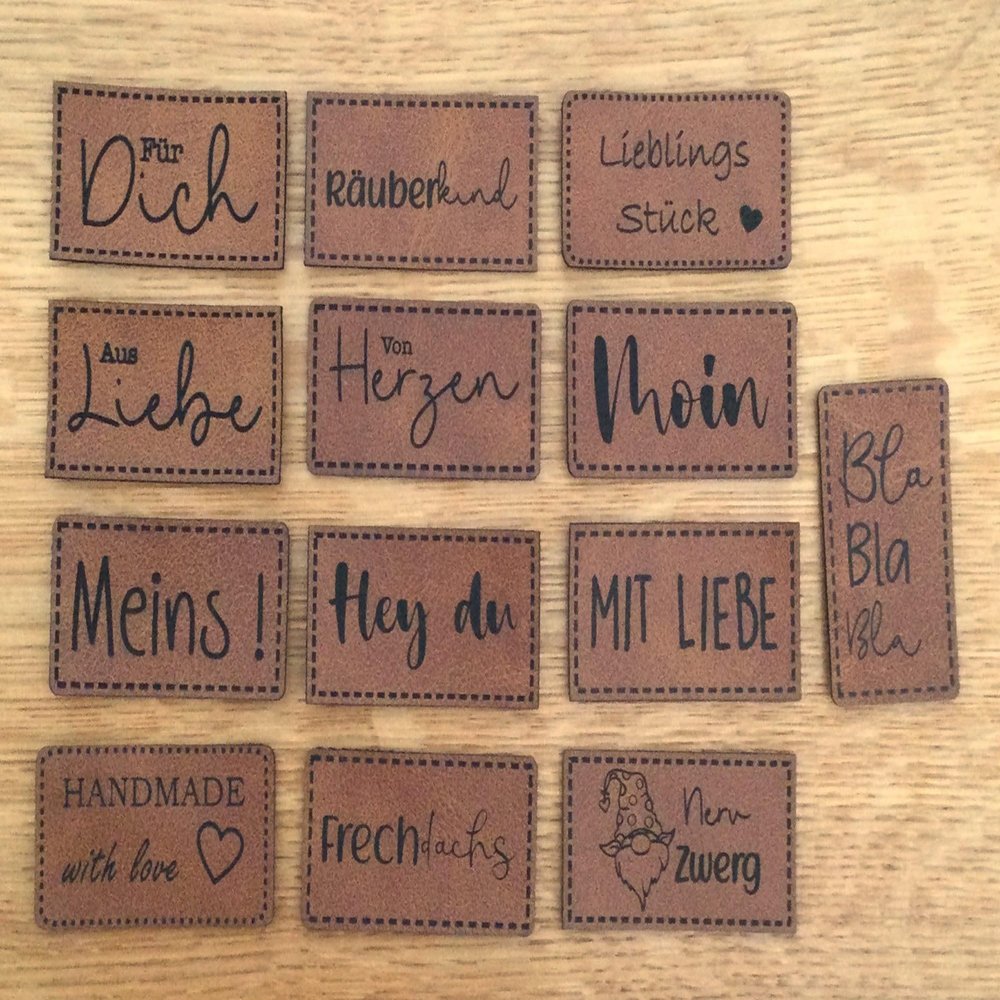 Für
Dich
Räuberkind
Lieblings
Stück
Aus
Liebe
Von
Herzen
Moin
Bla
Bla
Bla
Meins !
Hey du
MIT LIEBE
HANDMADE
with love
Frechdachs
Nerv
Zwerg